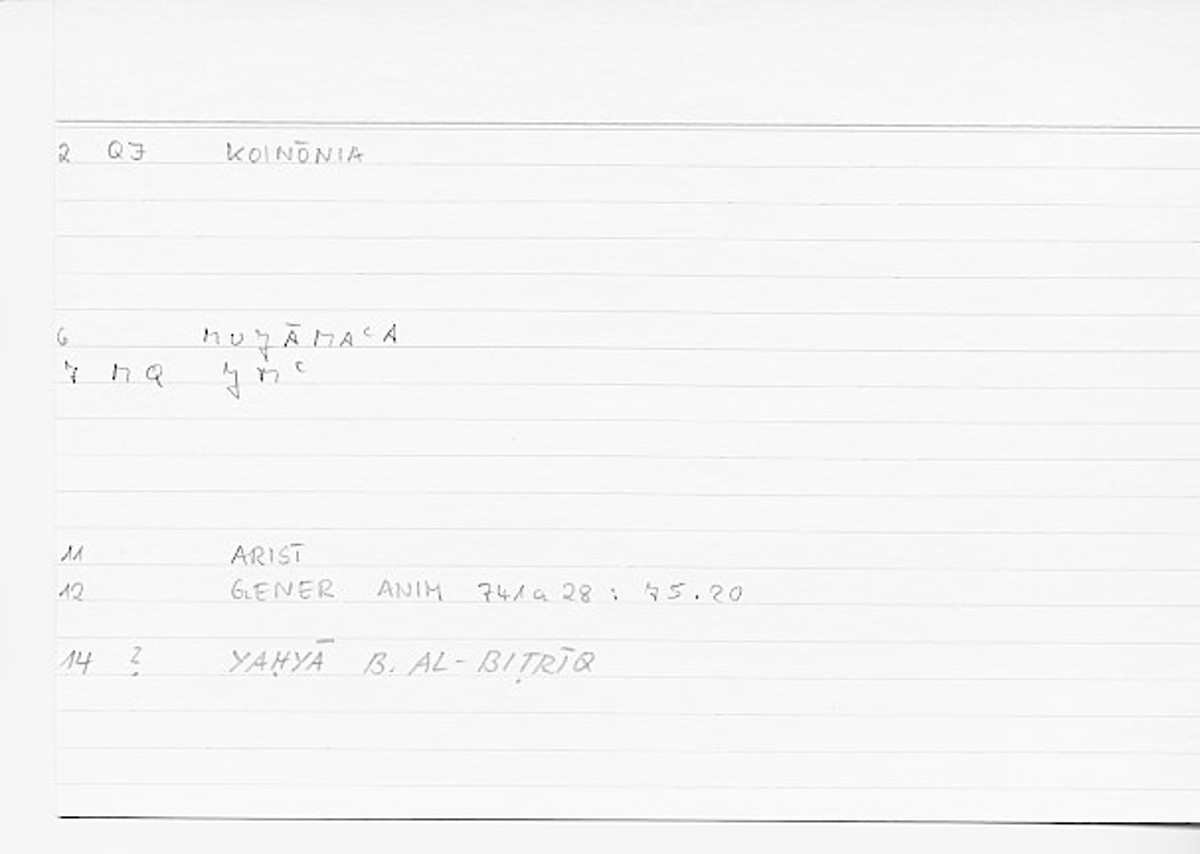 2 QJ KOINŌNIA
6 MUJĀMAᶜA
7 MQ JMᶜ
11 ARIST
12 GENER ANIM 741a 28 : 75.20
14 ? YAḤYĀ B. AL-BIṬRĪQ